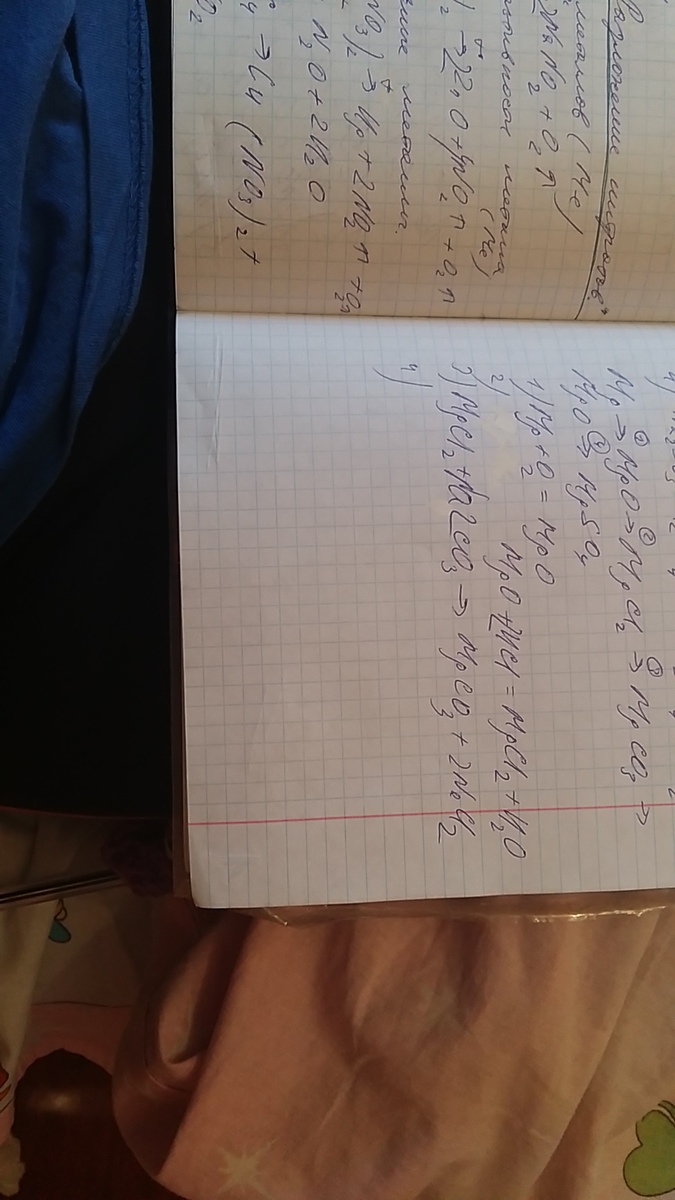 Разложение нитратов
металлов (Me)
NaNO2 + O2↑
активности металла
(Me)
→ 2ZnO + 4NO2↑ + O2↑
металл.
NO3)2 → Mg + 2NO2↑ + O2↑
N2O + 2H2O
→ Cu (NO3)2 +
O2
4)
Mg → MgO → MgCl2 → MgCO3 →
MgO → MgSO4
1) Mg + O2 = MgO
2) MgO + 2HCl = MgCl2 + H2O
3) MgCl2 + Na2CO3 → MgCO3 + 2NaCl2
4)